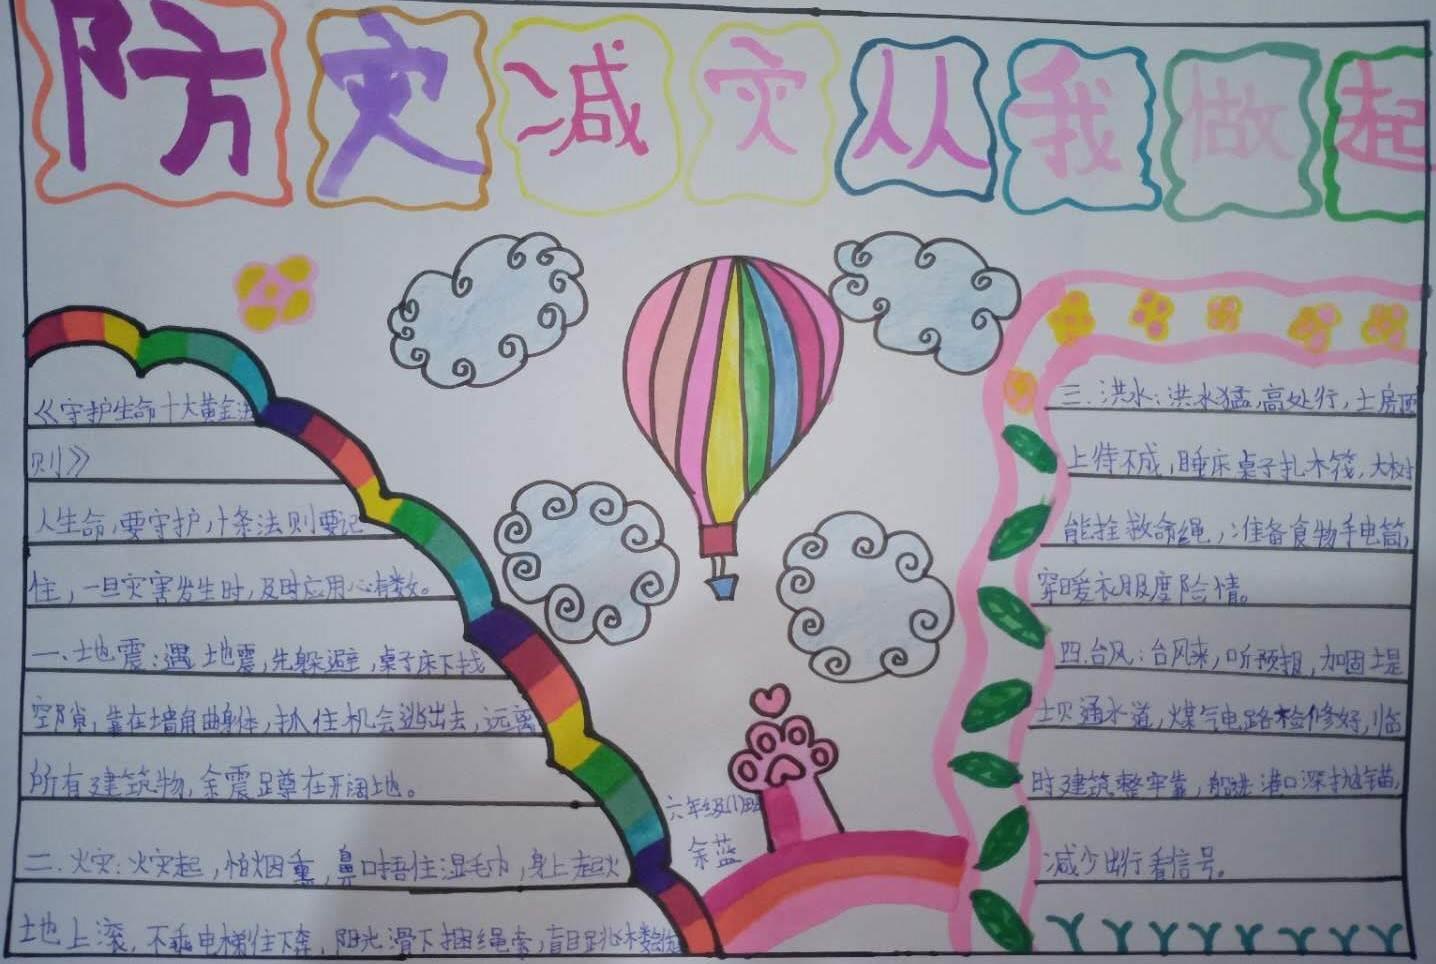 防灾减灾从我做起
《守护生命十大黄金法
则》
人生命,要守护,十条法则要记
住,一旦灾害发生时,及时应用心有数。
一、地震:遇地震,先躲避,桌子床下找
空隙,靠在墙角曲身体,抓住机会逃出去,远离
所有建筑物,余震蹲在开阔地。
二、火灾:火灾起,怕烟熏,鼻口捂住湿毛巾,身上起火
地上滚,不乘电梯往下奔,阳光滑下捆绳索,盲目跳楼
六年级(1)班
余蓝
三、洪水:洪水猛,高处行,土房
上待不成,睡床桌子扎木筏,大树
能拴救命绳,准备食物手电筒,
穿暖衣服度险情。
四、台风:台风来,听预报,加固堤
坝通水道,煤气电路检修好,临
时建筑整牢靠,船进港口深抛锚,
减少出行看信号。